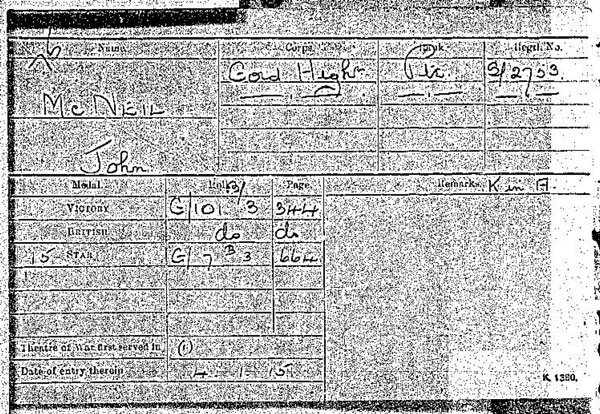 Name. Corps. Rank. Regtl. No.
Gord Highrs Pte S/2753
McNEIL
John
Medal. Roll. Page. Remarks. K in A.
VICTORY G/101 B/3 344
BRITISH do do
15 STAR G/7 B 3 664
Theatre of War first served in (1)
Date of entry therein 4-1-15
K. 1380.